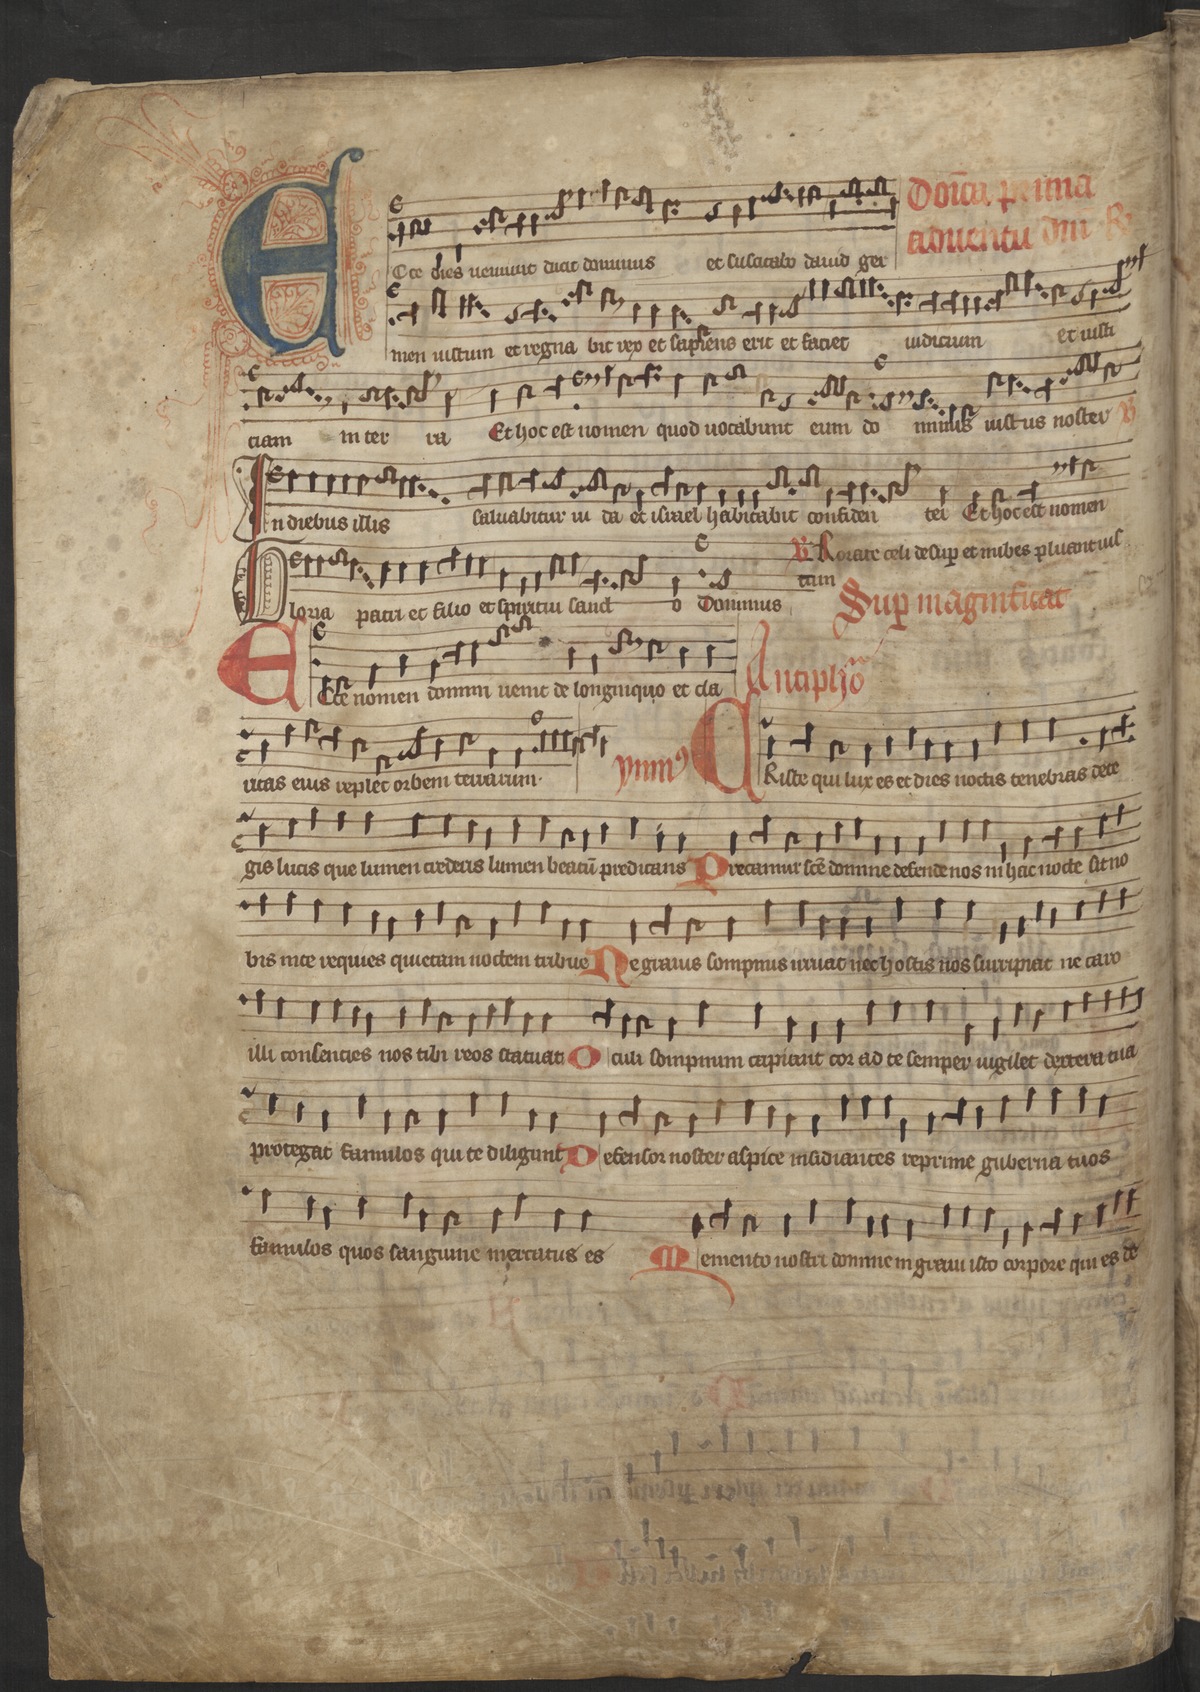 Dom̄ca prima
aduentu dn̄i R
Ecce dies ueniunt dicit dominus et suscitabo dauid ger
men iustum et regna bit rex et sapiens erit et faciet iudicium et iusti
ciam in ter ra Et hoc est nomen quod uocabunt eum do minus iustus noster V
In diebus illis saluabitur iu da et israel habitabit confiden ter Et hoc est nomen
V Rorate celi desuper et nubes pluant ius
tum
Gloria patri et filio et spiritui sanct o Dominus
Sup magnificat
Antipho
Ecce nomen domini uenit de longinquo et cla
ritas eius replet orbem terrarum
ymnus
Christe qui lux es et dies noctis tenebras dete
gis lucis que lumen crederis lumen beatū predicans Precamur scē domine defende nos in hac nocte sit no
bis in te requies quietam noctem tribue Ne grauis sompnus irruat nec hostis nos surripiat ne caro
illi consencies nos tibi reos statuat Oculi sompnum capiant cor ad te semper uigilet dextera tua
protegat famulos qui te diligunt Defensor noster aspice insidiantes reprime guberna tuos
famulos quos sanguine mercatus es Memento nostri domine in graui isto corpore qui es de